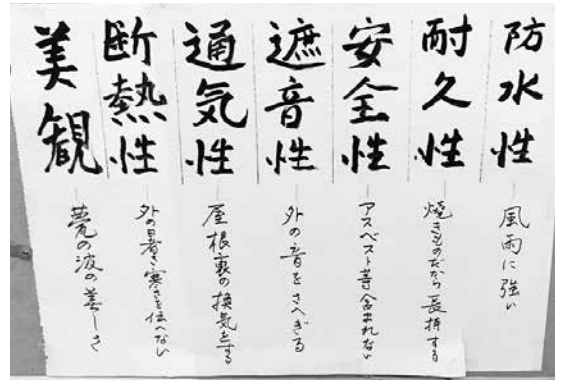 防水性
風雨に強い
耐久性
焼きものだから長持する
安全性
アスベスト等含まれない
遮音性
外の音をさへぎる
通気性
屋根裏の換気をする
断熱性
外の暑さ寒さを伝へない
美観
甍の波の美しさ